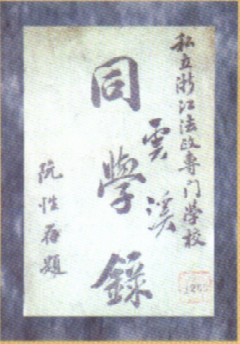 私立浙江法政專門學校
雲溪
同學錄
阮性存題